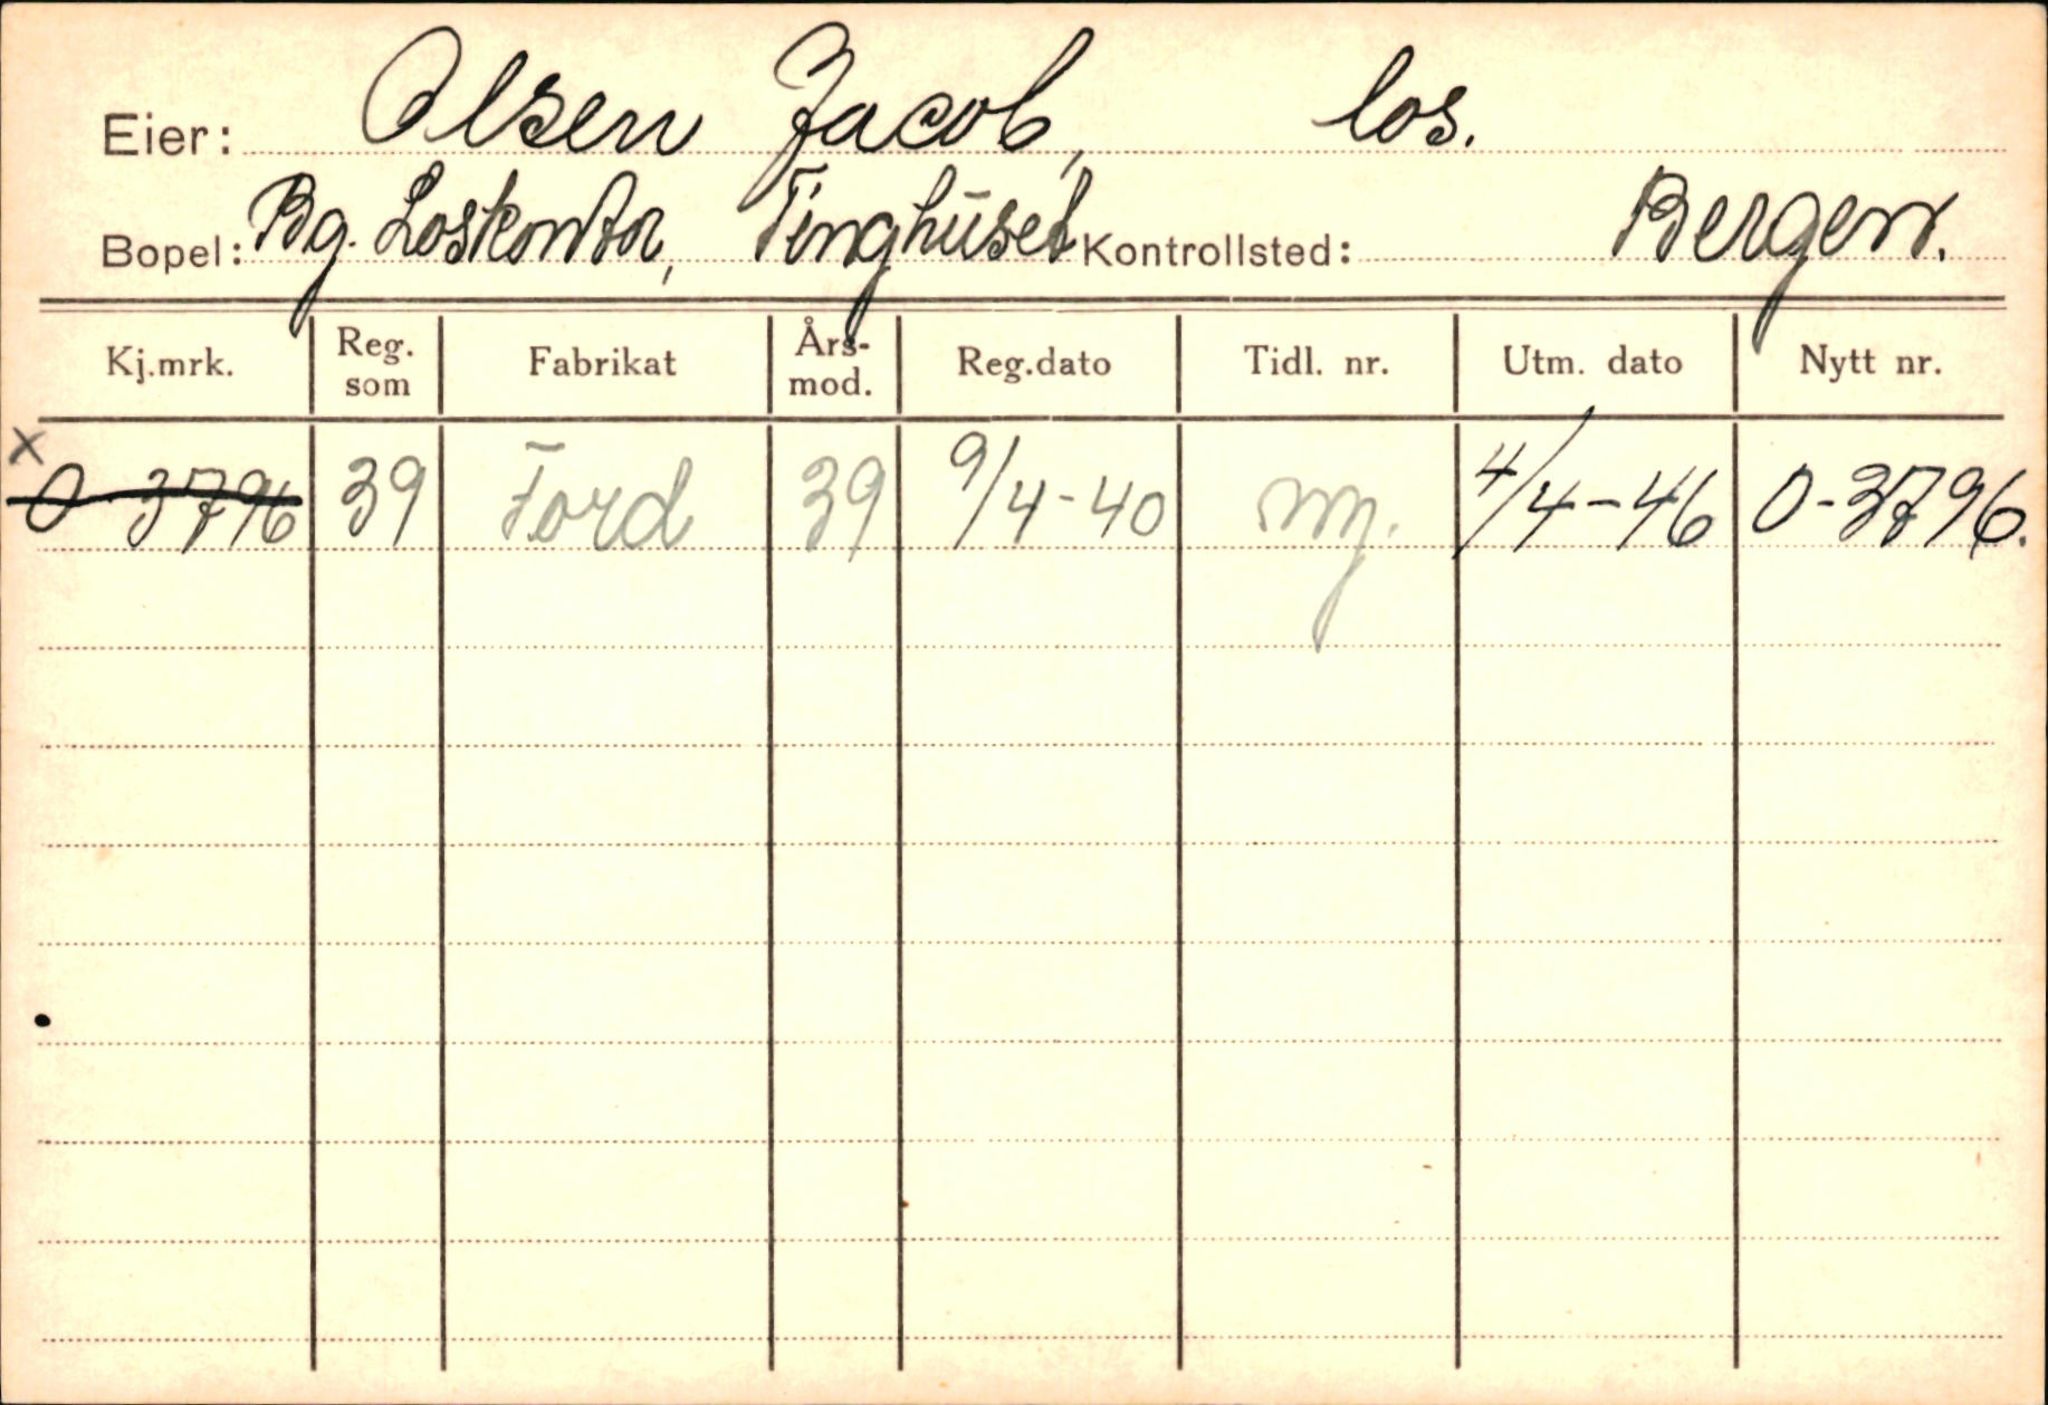 Eier: Olsen Jacob, los.
Bopel: Bg. Loskontor, Tinghuset Kontrollsted: Bergen.
Kj.mrk. Reg. som Fabrikat Års-mod. Reg.dato Tidl. nr. Utm. dato Nytt nr.
x
O 3796 39 Ford 39 9/4-40 ny. 4/4-46 O-3796.